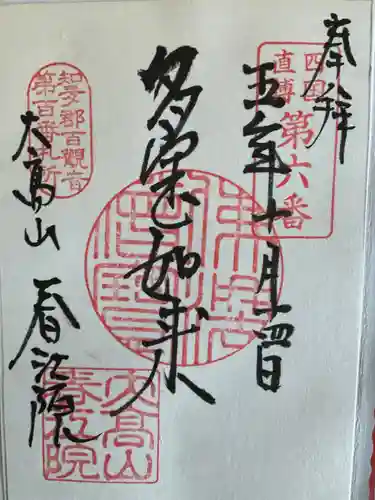 奉拝
四国
直傳
第六番
五年十月十四日
多寳如来
知多郡百觀音
第百番札所
大高山 春江院
大高山
春江院